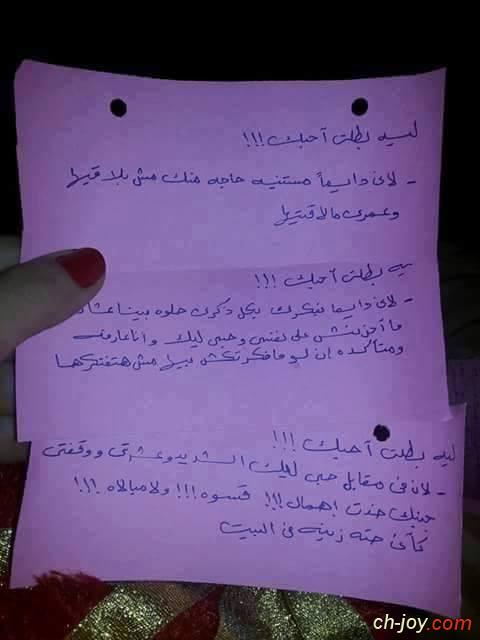 ليه بطلت أحبك !!!
- لانى دايماً مستنيه حاجه منك مش بلاقيها
وعمرى مالاقيتها
ليه بطلت أحبك !!!
- لانى دايما بفكرك بكل ذكرى حلوه بينا عشان
ما أحزنش على نفسى وحبى ليك وانا عارفه
ومتأكده إن لو مافكرتكش بيها مش هتفتكرها
ليه بطلت أحبك !!!
- لان فى مقابل حبى ليك الشديد وعشرتى ووقفتى
جنبك خدت إهمال !!! قسوه !!! ولا مبالاه !!!
كأنى حته زينه فى البيت
ch-joy.com